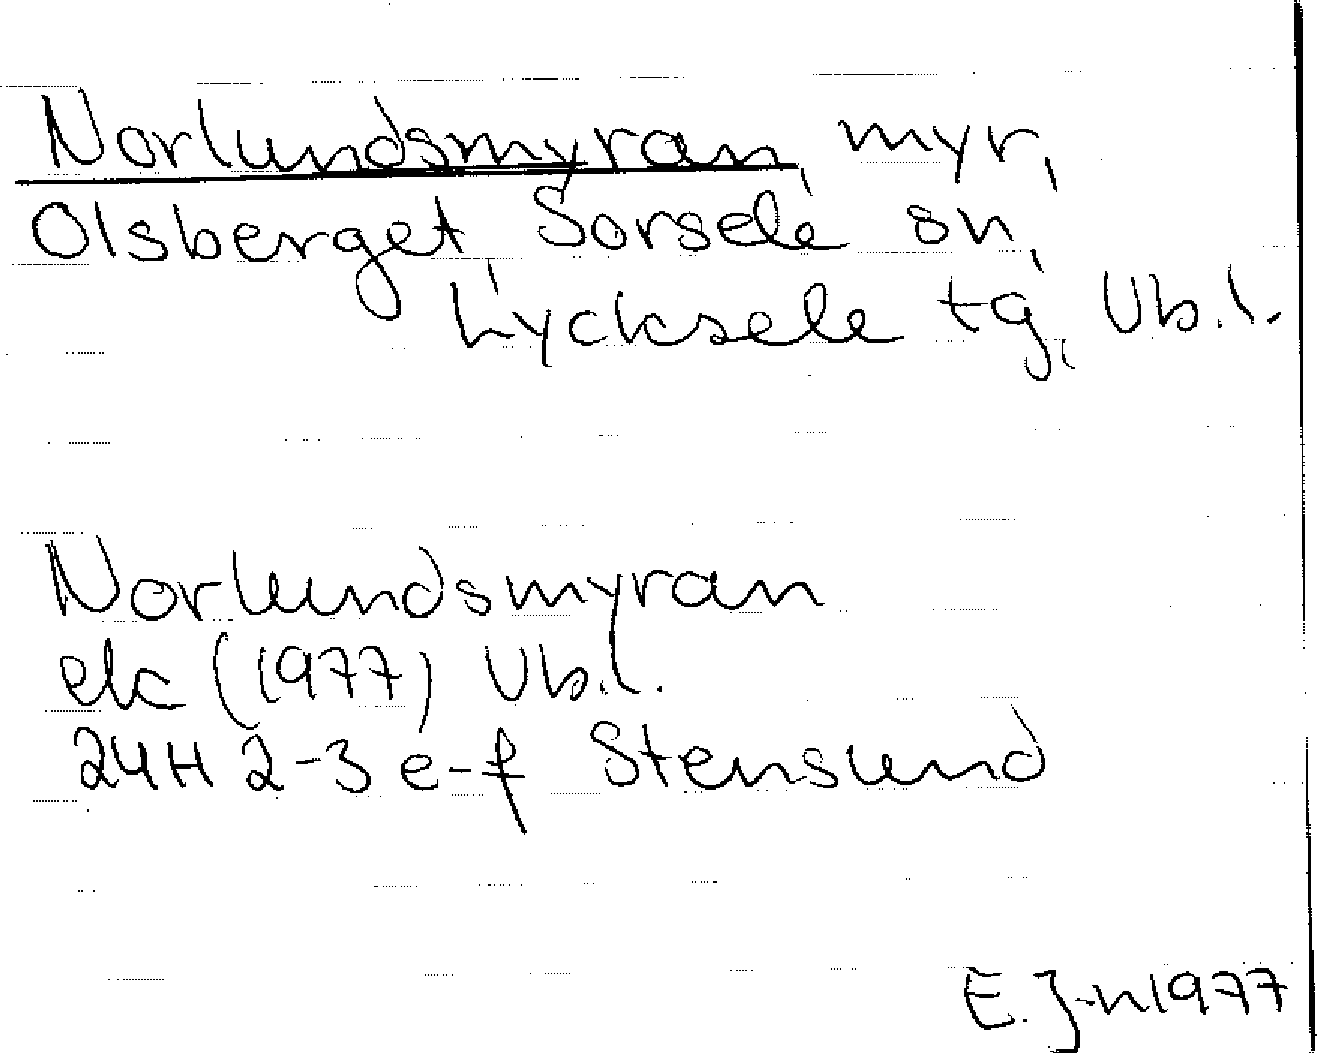 Norlundsmyran, myr,
Olsberget, Sorsele sn,
Lycksele tg, Vb.l.
Norlundsmyran
ek (1977) Vb.l.
24H 2-3 e-f Stenslund
E. J-n 1977